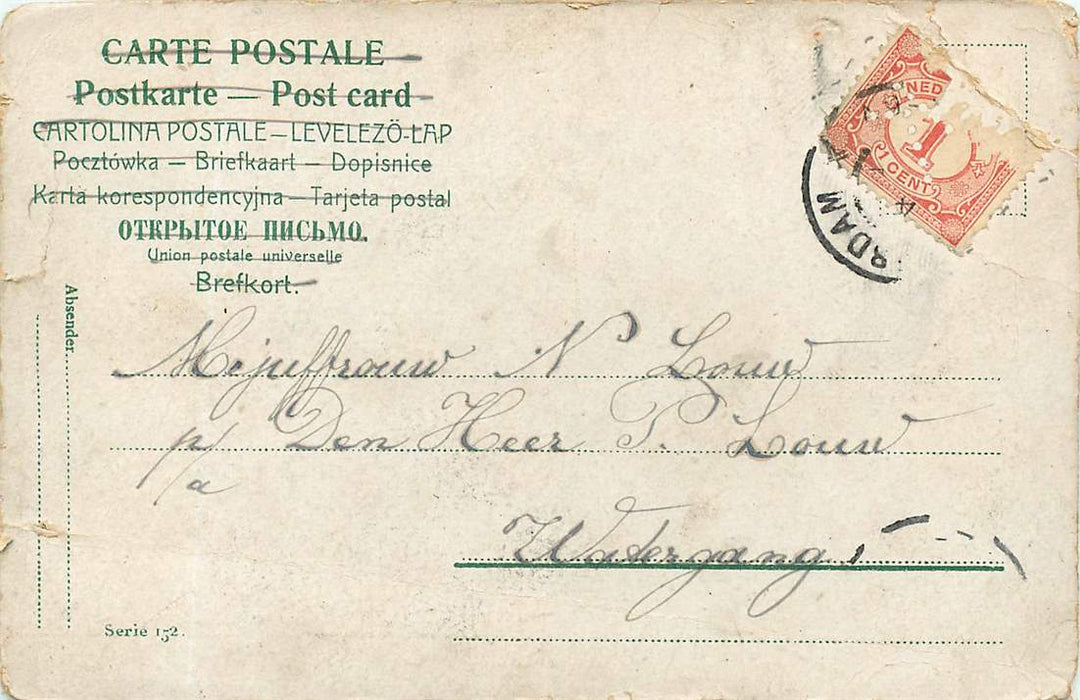 CARTE POSTALE
Postkarte — Post card
CARTOLINA POSTALE – LEVELEZŐ-LAP
Pocztówka – Briefkaart – Dopisnice
Karta korespondencyjna – Tarjeta postal
ОТКРЫТОЕ ПИСЬМО.
Union postale universelle
Brefkort.
NED
1
1 CENT
RDAM
Absender.
Mejuffrouw N Louw
p/a Den Heer P. Louw
Watergang
Serie 152.